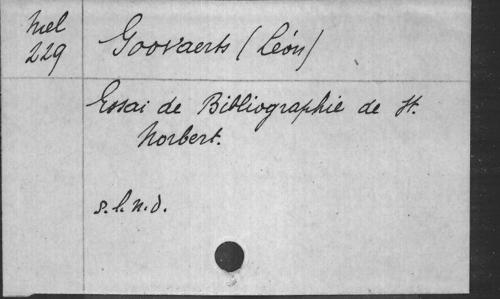 Mel
229
Goovaerts (Léon)
Essai de Bibliographie de St.
Norbert.
s.l.n.d.